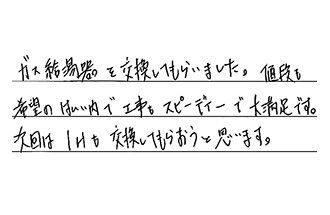 ガス給湯器を交換してもらいました。値段も
希望のはんい内で工事もスピーディーで大満足です。
次回はIHも交換してもらおうと思います。